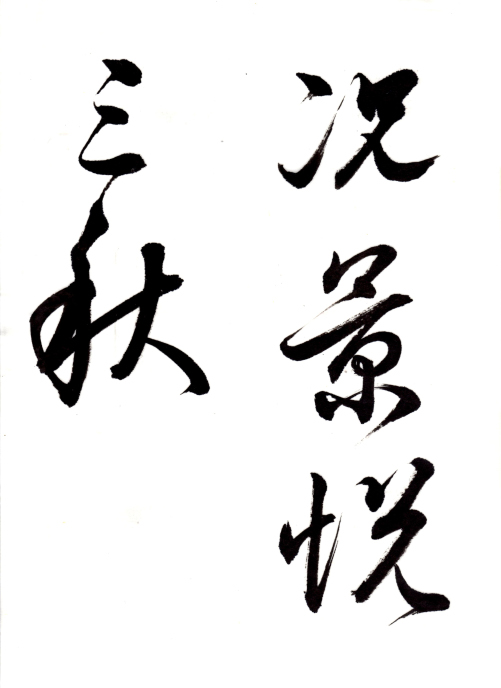 况景悦
三秋